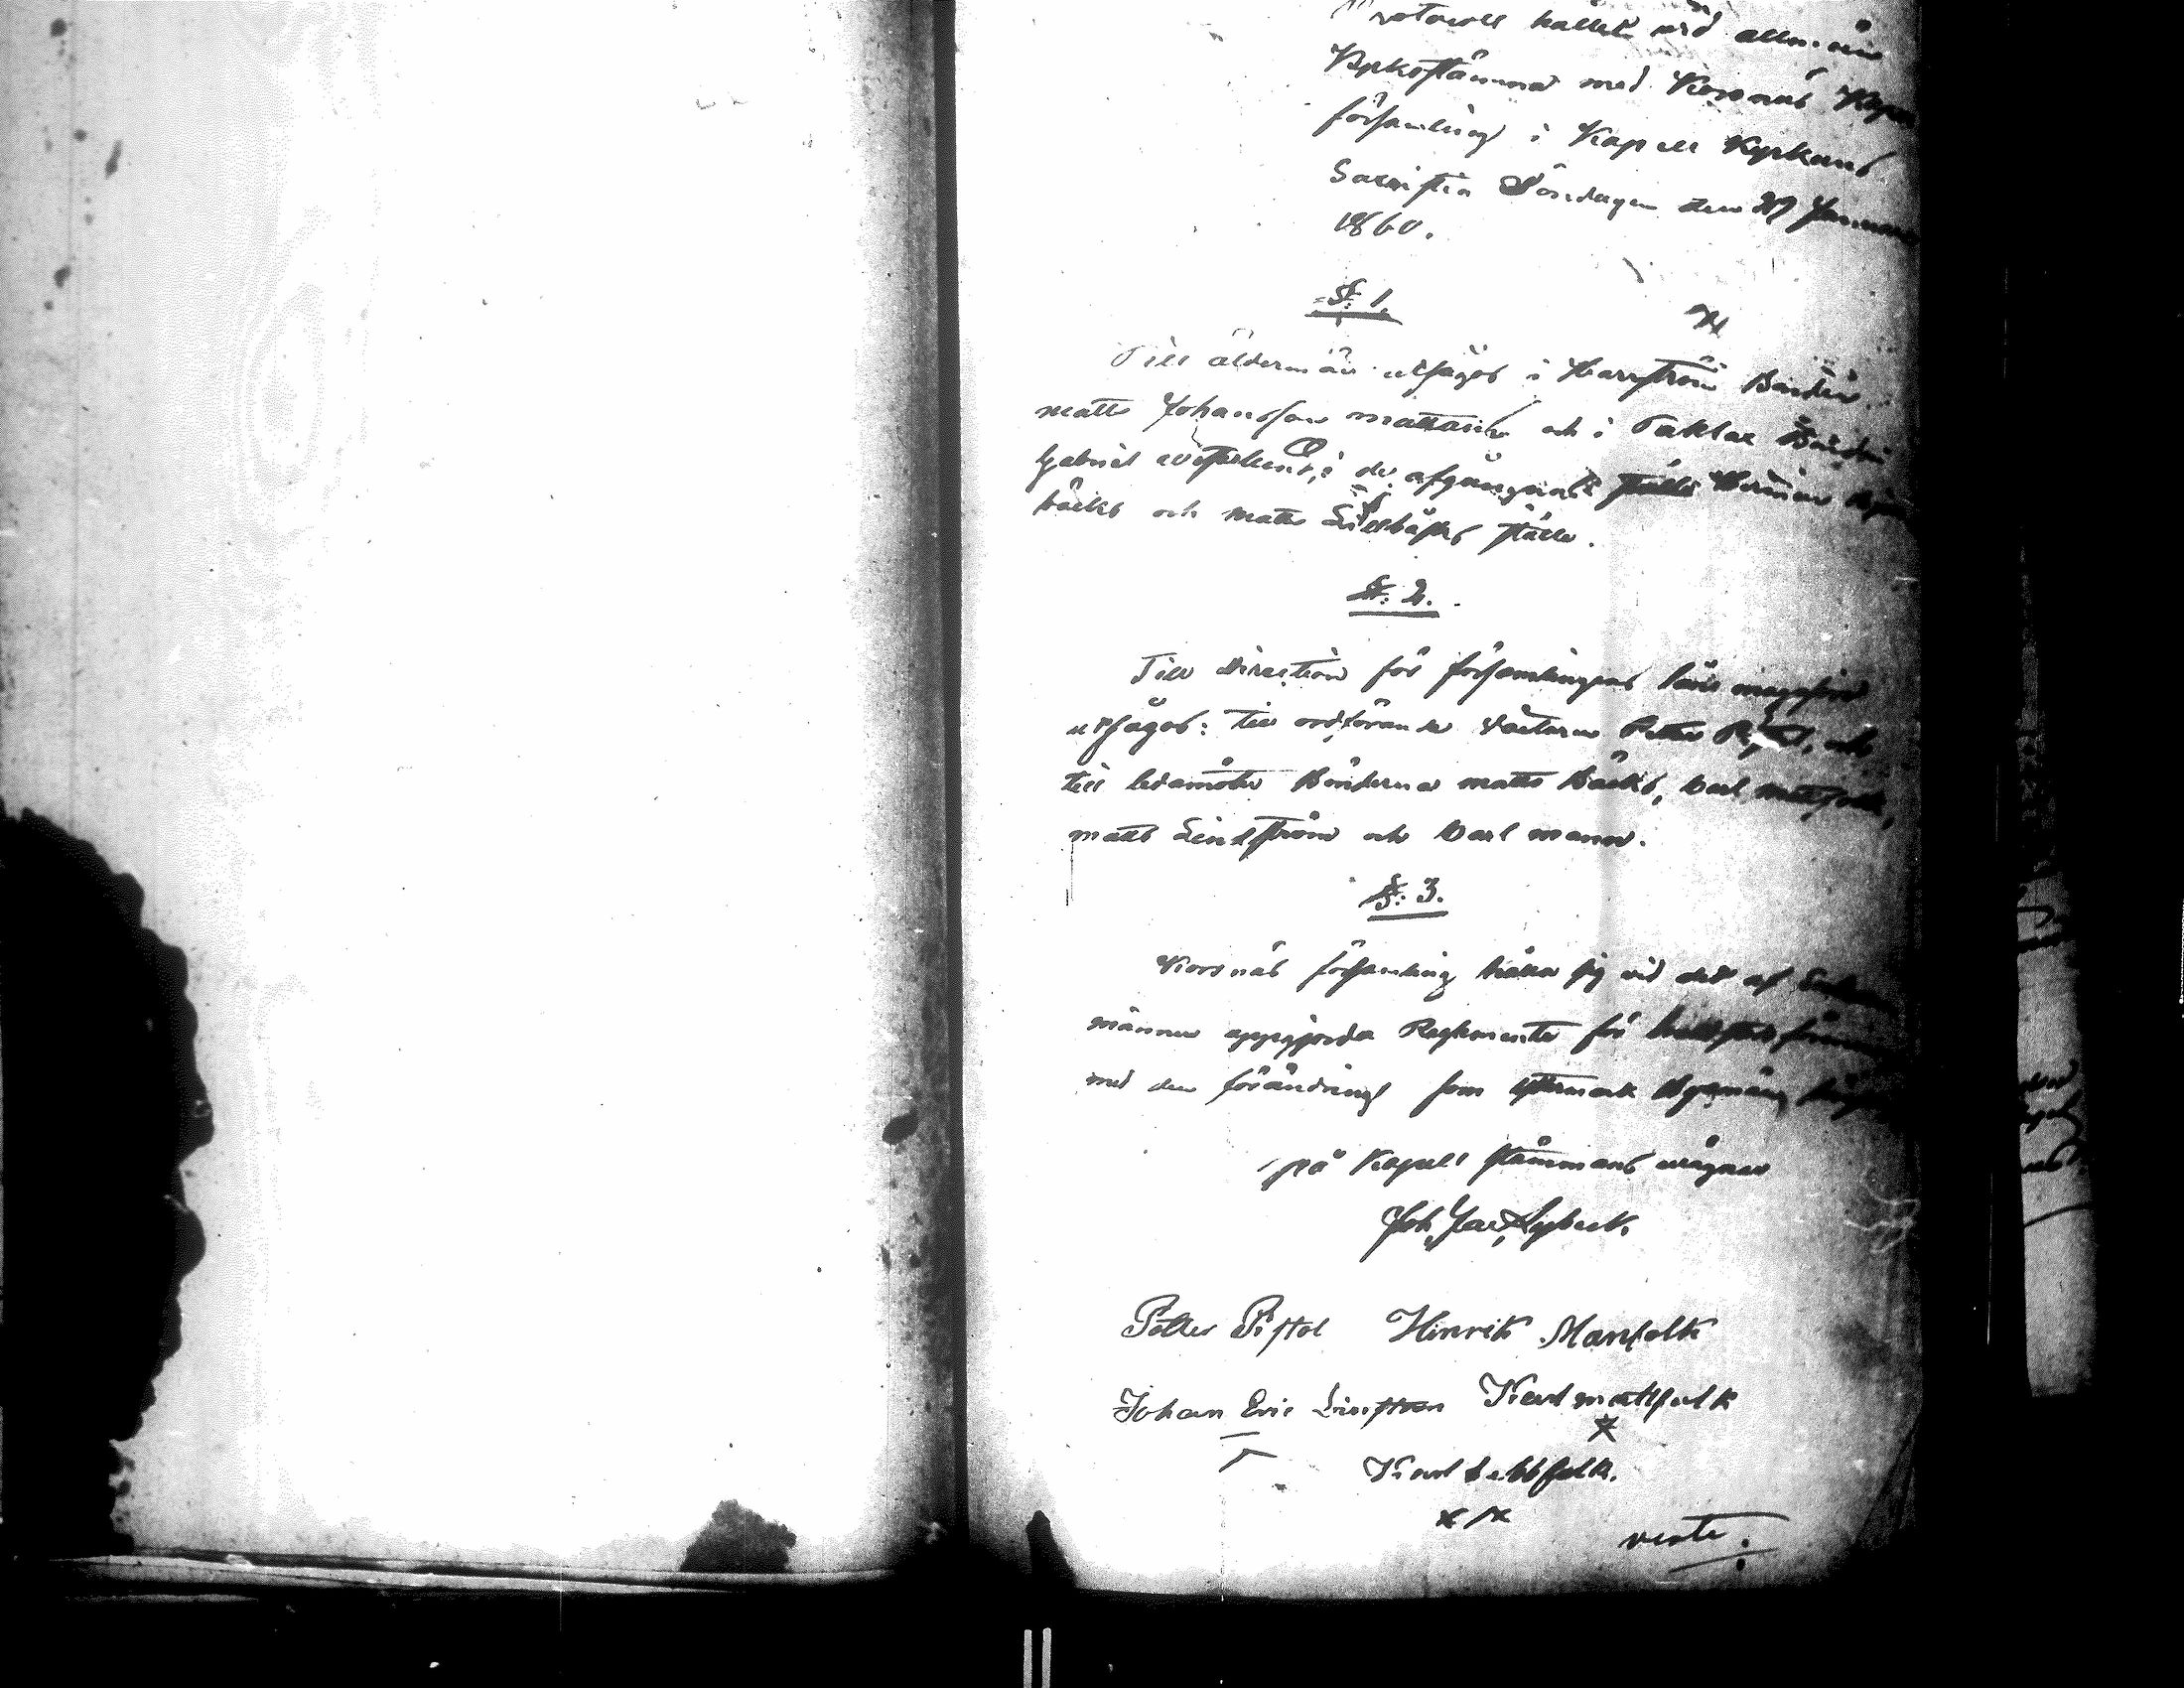 Protocoll hållet vid allmän
Kyrkostämma med Korsnäs Kapell
församling i Kapell Kyrkans
Sacristia Söndagen den 29 Januari
1860.
§: 1.
Till åldermän utsågos i Harrström Bonden
Matts Johansson Mattans och i Taklax Bonden
Gabriel Westerlund, i de afgångnas ställe
bäcks och Matts ställe.
§: 2.
Till Direction för församlingens låne magasin
utsågos: till ordförande Vaktarn Petter Pistol, och
till ledamöter Bönderna Matts Bäcks, Carl Mattfolk,
Matts Lindström och Carl Mann.
§: 3.
Korsnäs församling håller sig vid det af
männer uppgjorda Reglemente för
med den förändring som Öfvermark
på Kapell stämmans wägnar
Joh. Jac. Nybeck.
Petter Pistol Hinrik Manfolk
Johan Eric Linström Karl Mattfolk
Karl Ebbfolk.
verte.